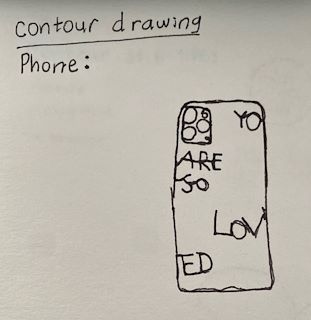 contour drawing
Phone:
YO
ARE
SO
LOV
ED